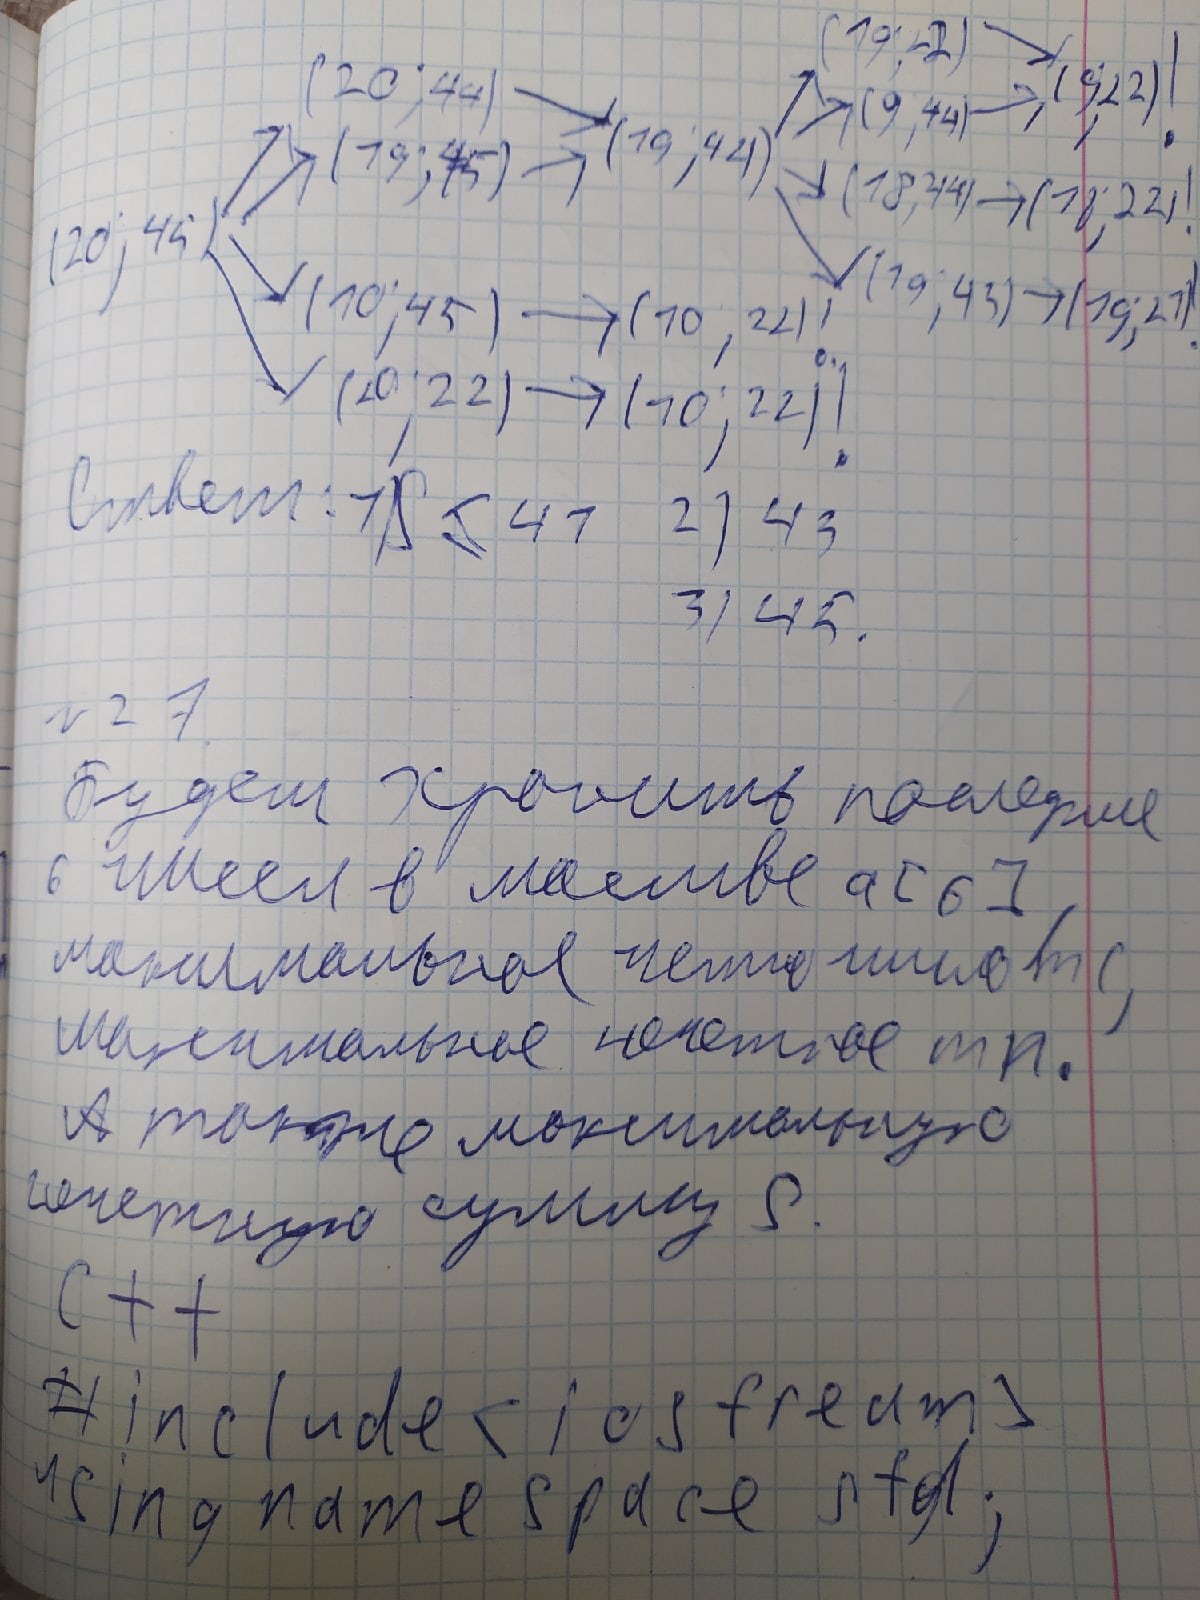 (19; 22) (9; 22)!
(20; 44) (9, 44)
(19; 45) (19; 44) (18, 44) (18; 22)!
(20; 45) (19; 43) (19; 21)!
(10; 45) (10; 22)!
(20; 22) (10; 22)!
Ответ: 1) S ≤ 41 2) 43
3) 45.
№27.
Будем хранить последние
6 чисел в массиве a[6],
максимальное четно число mc,
максимальное нечетное mn.
А также максимальную
нечетную сумму S.
C++
#include<iostream>
using namespace std;